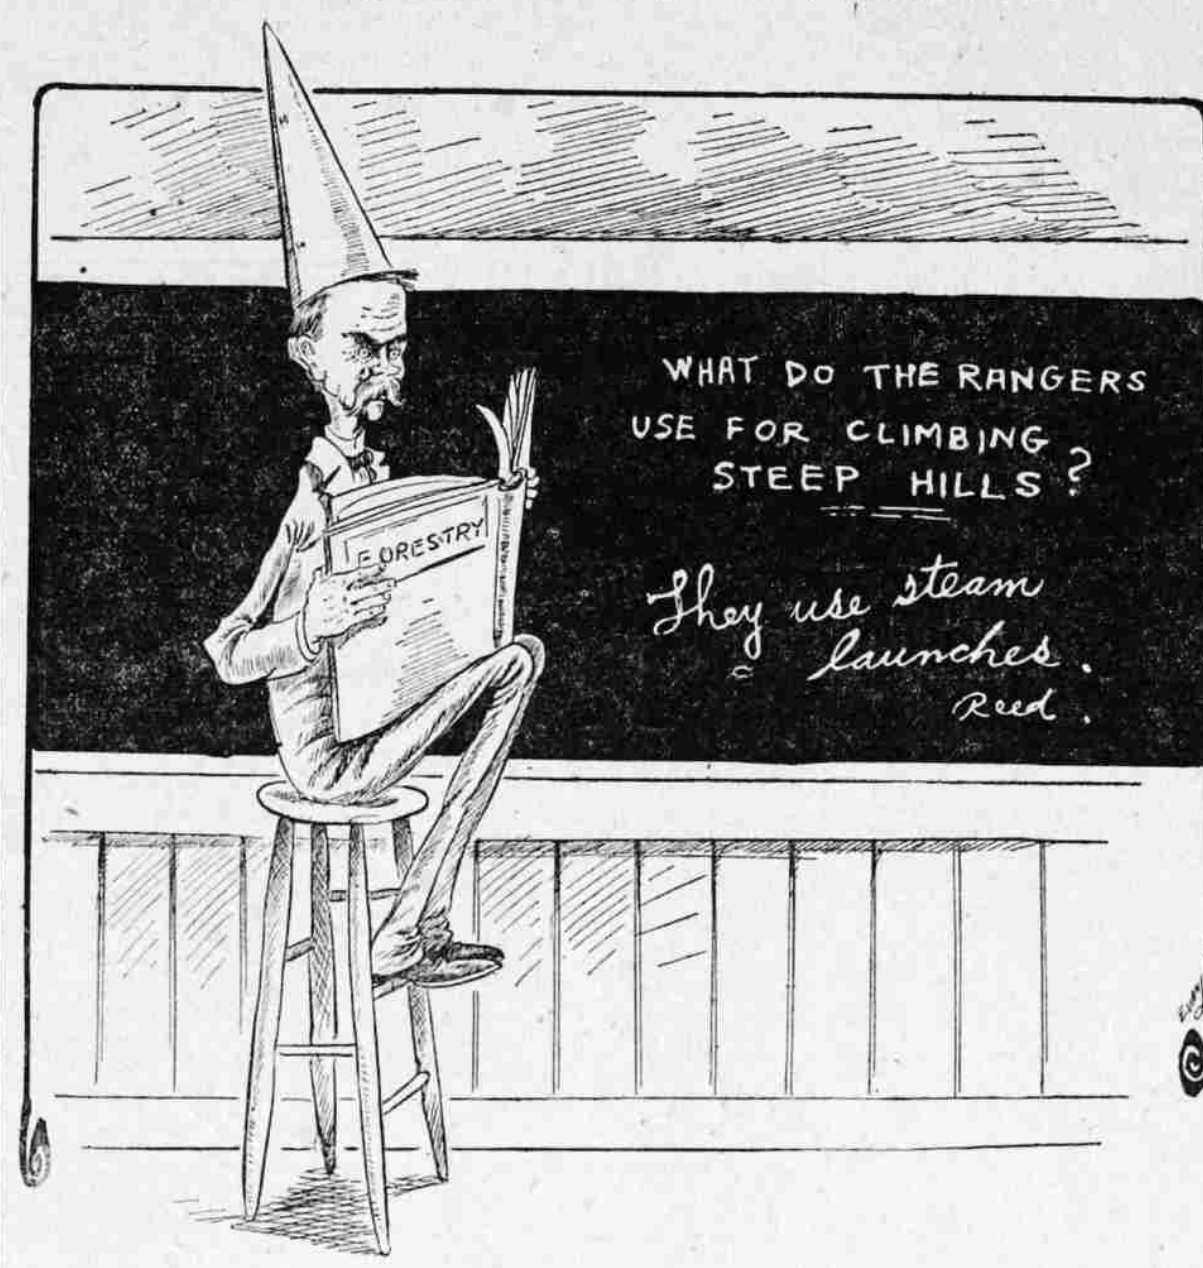 WHAT DO THE RANGERS
USE FOR CLIMBING
STEEP HILLS?
They use steam
launches.
Reed.
FORESTRY